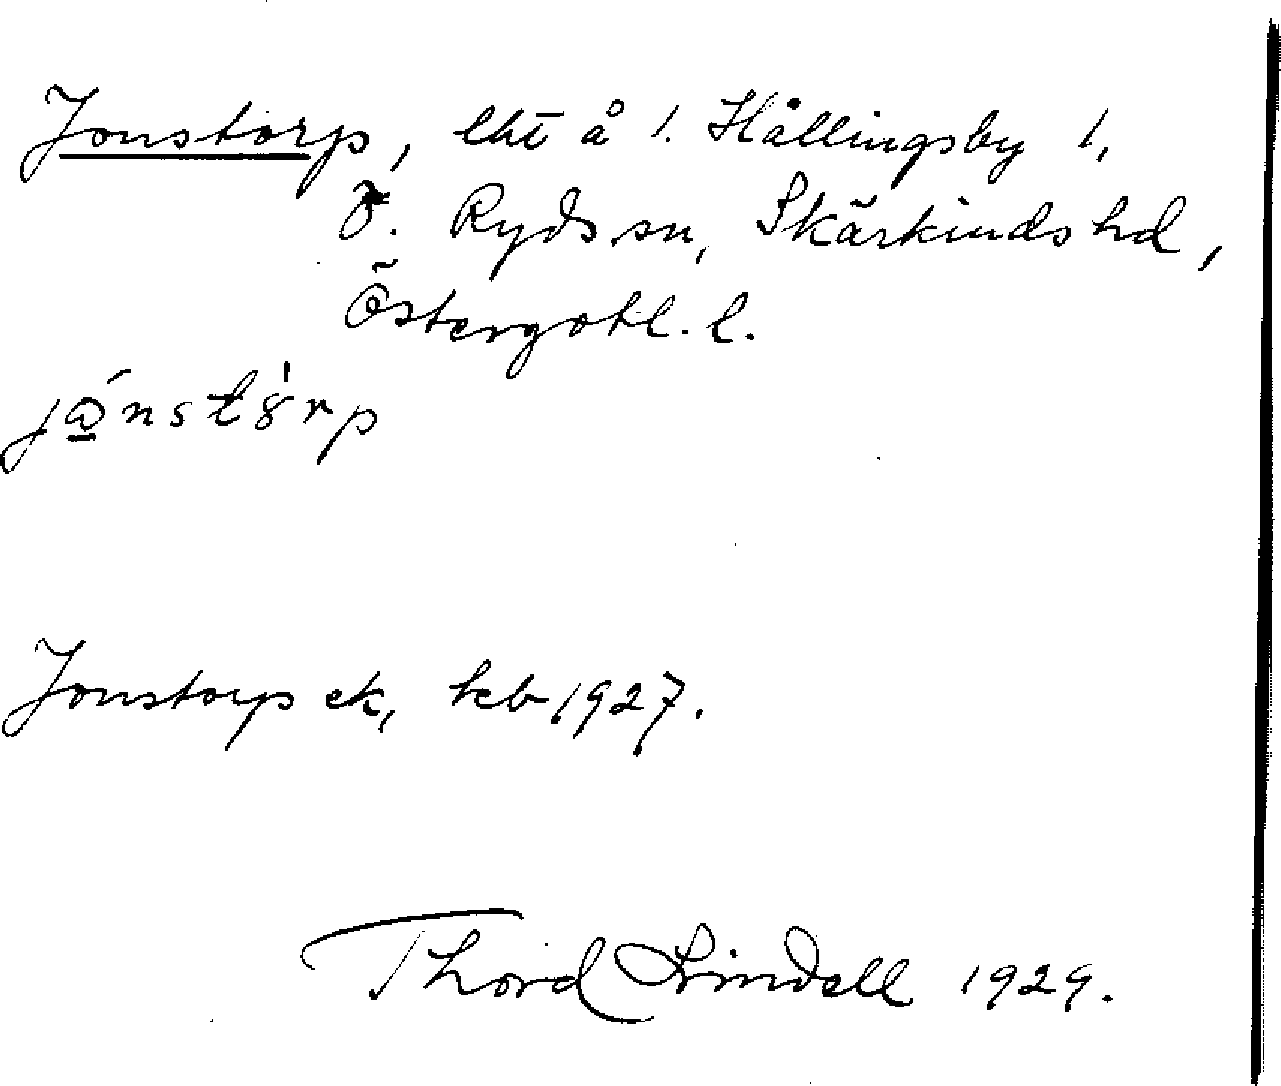 Jonstorp, lht å 1. Hållingsby 1,
Ö. Ryds sn, Skärkinds hd,
Östergötl. l.
Jonstorp ek, keb 1927.
Thord Lindell 1929.